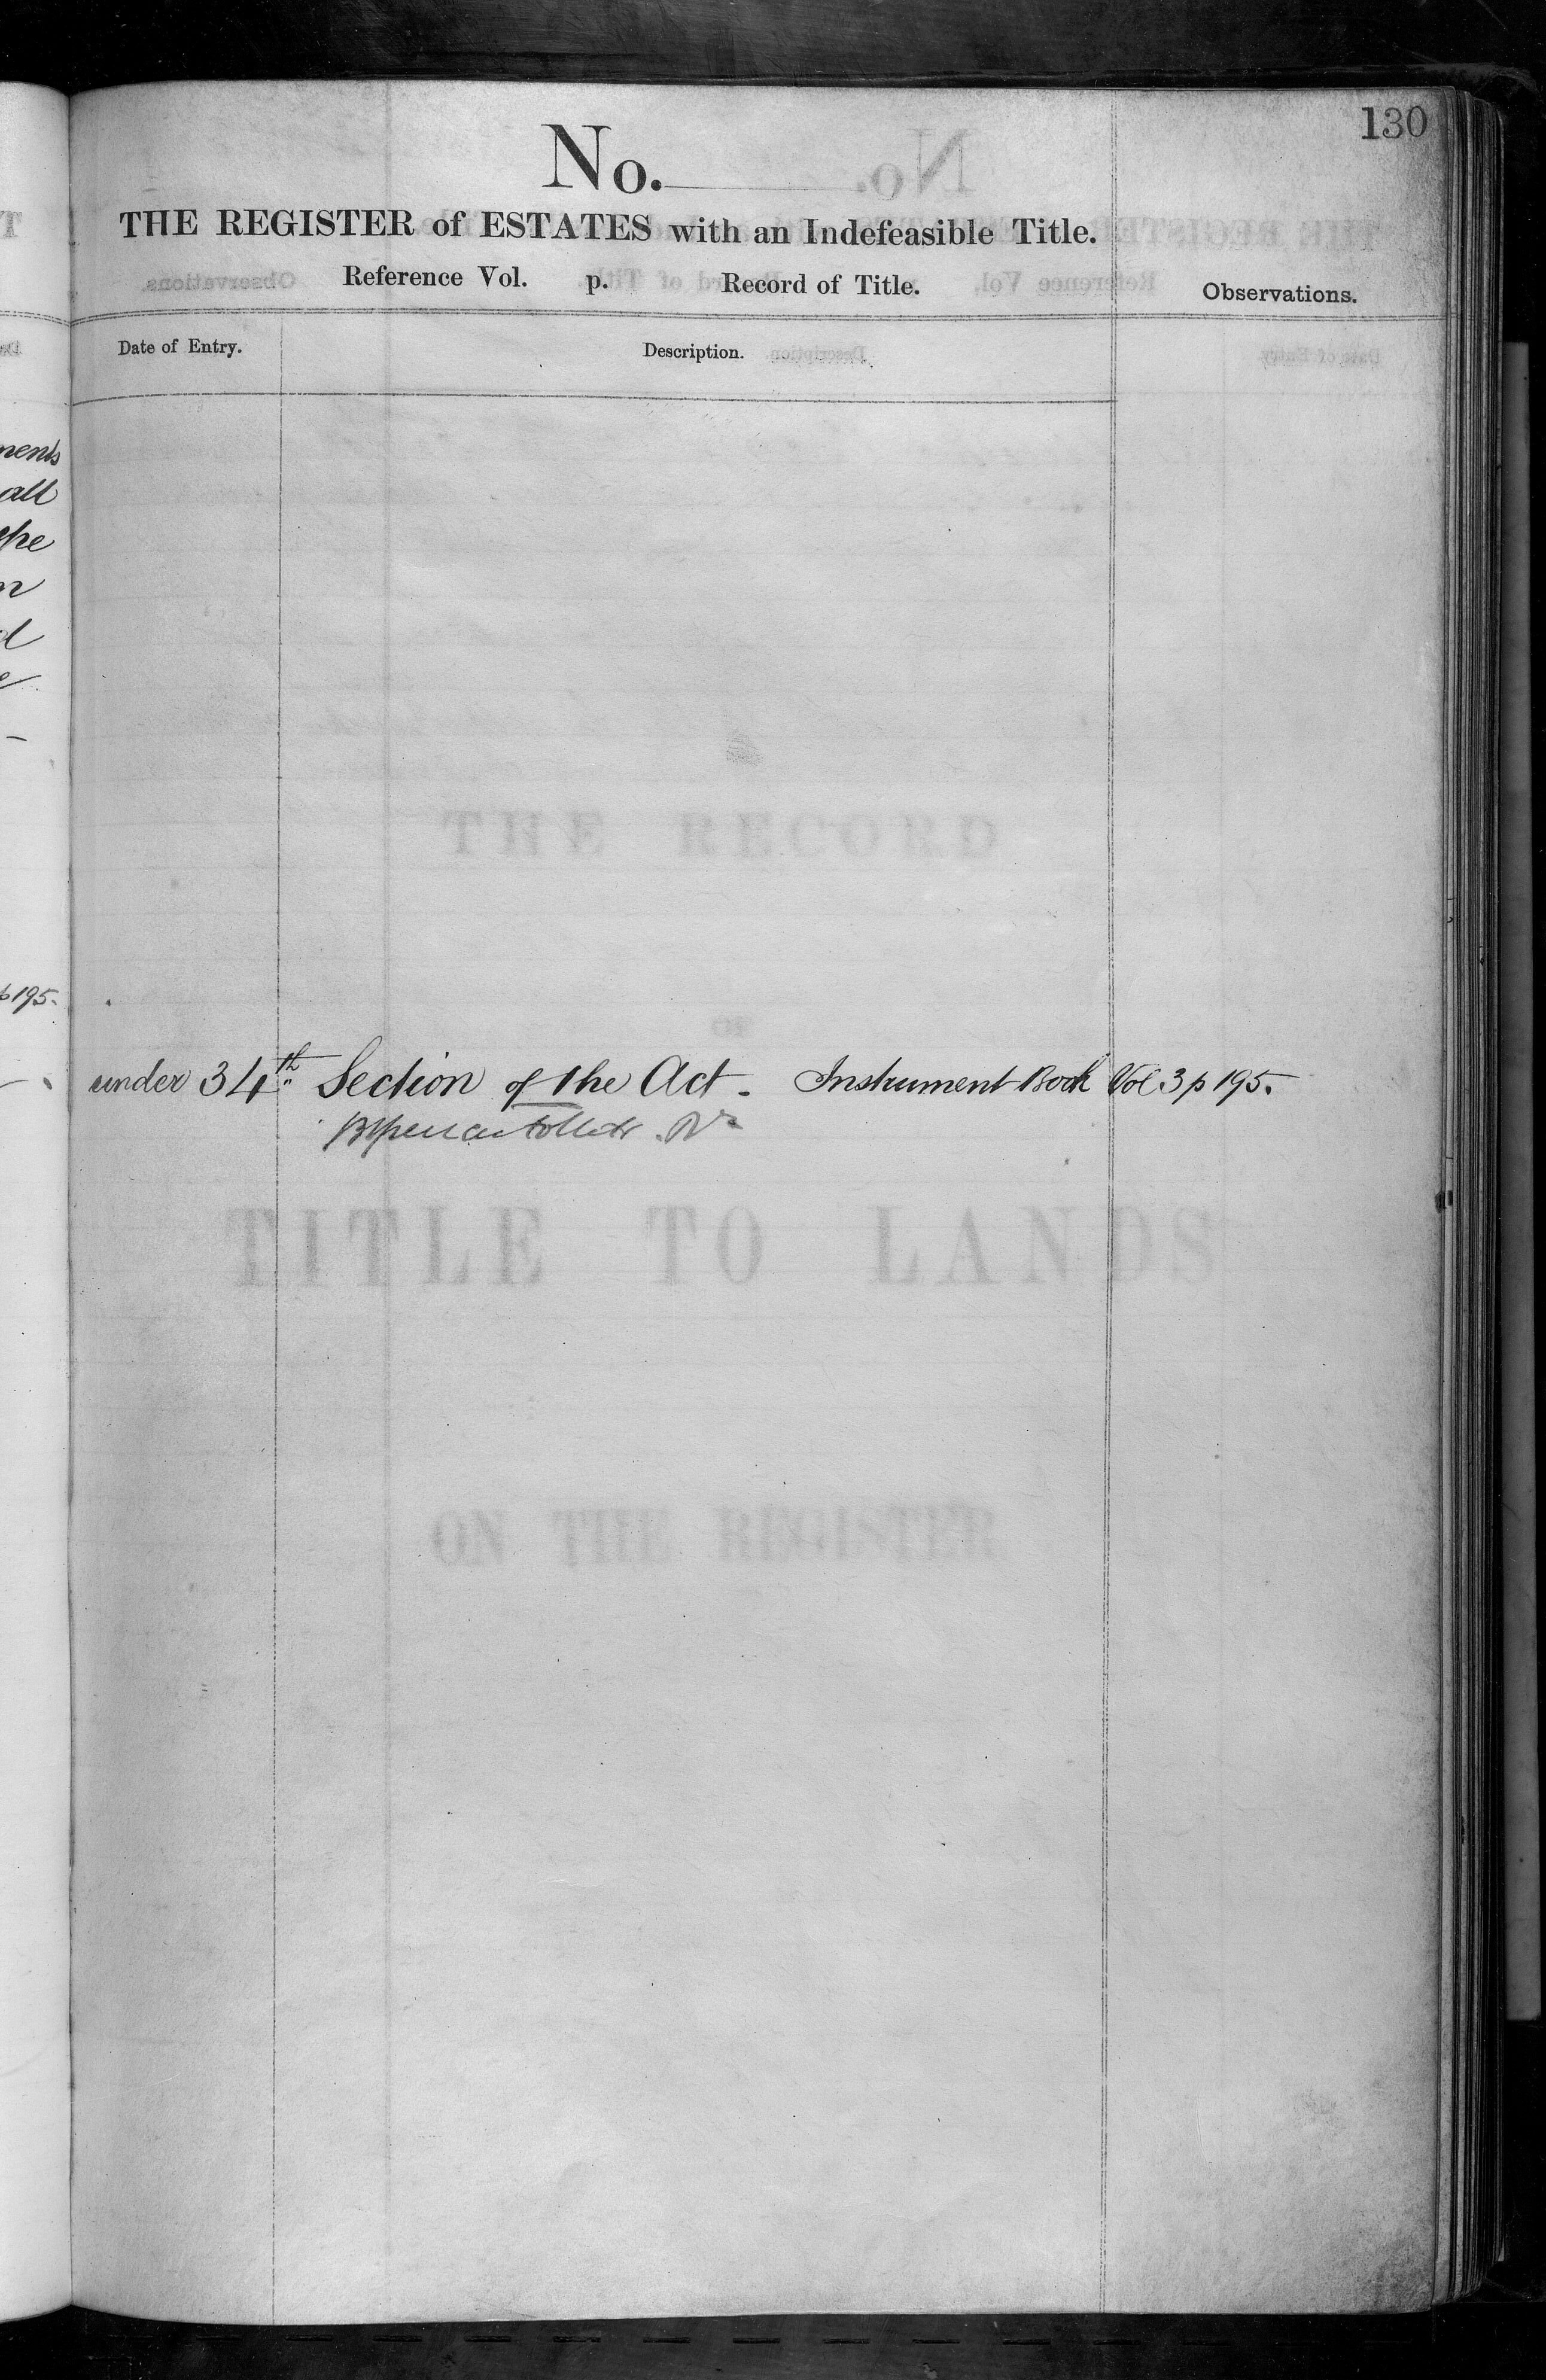 130
No.
THE REGISTER of ESTATES with an Indefeasible Title.
Reference Vol. p. Record of Title.
Observations.
Date of Entry. Description.
nents
all
the
n
d
e
p 195.
under 34th Section of the Act. Instrument Book Vol 3 p 195.
THE RECORD
OF
TITLE TO LANDS
ON THE REGISTER